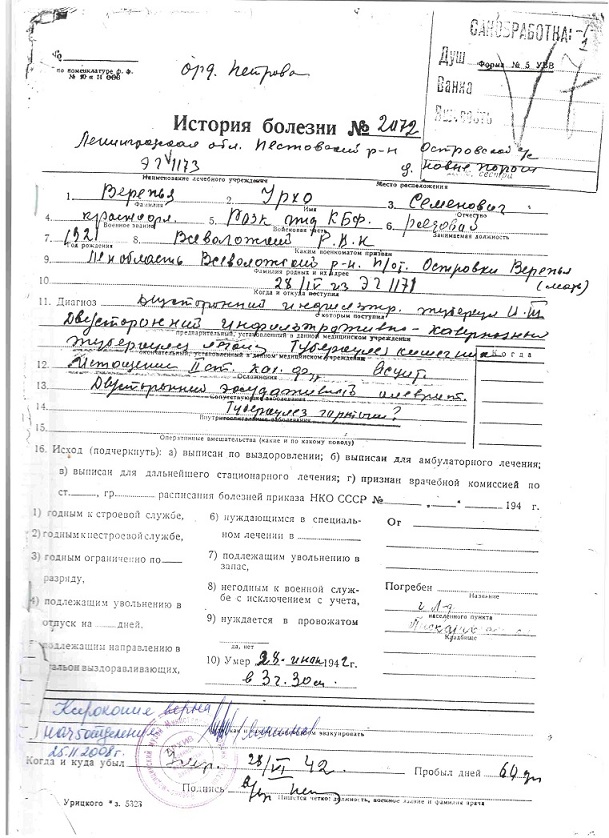 САНОБРАБОТКА:
Душ
Форма № 5 УВВ
Ванна
по номенклатуре ф. ф.
№ 10 и 11
орд. Петрова
История болезни № 2072
Ленинградская обл. Пестовский р-н Островской с/с
ЭГ 1173 д. Новые Пороги
Наименование лечебного учреждения
Место расположения
1. Верепья 2. Урхо 3. Семенович
Фамилия Имя Отчество
4. красноарм. 5. КБФ. 6. рядовой
Военное звание Войсковая часть Занимаемая должность
7. 1921 8. Всеволожский Р.В.К
Год рождения Каким военкоматом призван
9. Лен область Всеволожский р-н. п/от. Островки Верепья (мать)
Фамилия родных и их адрес
10. 28/IV из ЭГ 1171
Когда и откуда поступил
11. Диагноз Двусторонний инфильтр. туберкул
с которым поступил
Двусторонний инфильтративно-кавернозный
предварительный, установленный в данном медицинском учреждении
туберкулез легких Туберкулез кишечника Когда
окончательный, установленный в данном медицинском учреждении
12. Истощение II ст. Асцит.
Осложнения
13. Двусторонний экссудативный плеврит.
Сопутствующие заболевания
14. Туберкулез гортани?
Внутригоспитальные заболевания
15.
Оперативные вмешательства (какие и по какому поводу)
16. Исход (подчеркнуть): а) выписан по выздоровлении; б) выписан для амбулаторного лечения;
в) выписан для дальнейшего стационарного лечения; г) признан врачебной комиссией по
ст. , гр. расписания болезней приказа НКО СССР № „ “ 194 г.
1) годным к строевой службе,
2) годным к нестроевой службе,
3) годным ограничено по
разряду,
4) подлежащим увольнению в
отпуск на дней.
подлежащим направлению в
батальон выздоравливающих,
6) нуждающимся в специальном лечении в
7) подлежащим увольнению в
запас,
8) негодным к военной службе с исключением с учета,
9) нуждается в провожатом
да, нет
10) Умер 28 июня 1942 г.
в 3 ч. 30 м.
От
Погребен
Название
г. Л-д
населенного пункта
Кладбище
Ксерокопия верна
нач отделения
25.11.2008г.
эвакуировать
Когда и куда убыл Умер. 28/VI 42 Пробыл дней 60 дн
Подпись
Пишется четко: должность, военное звание и фамилия врача
Урицкого з. 5323